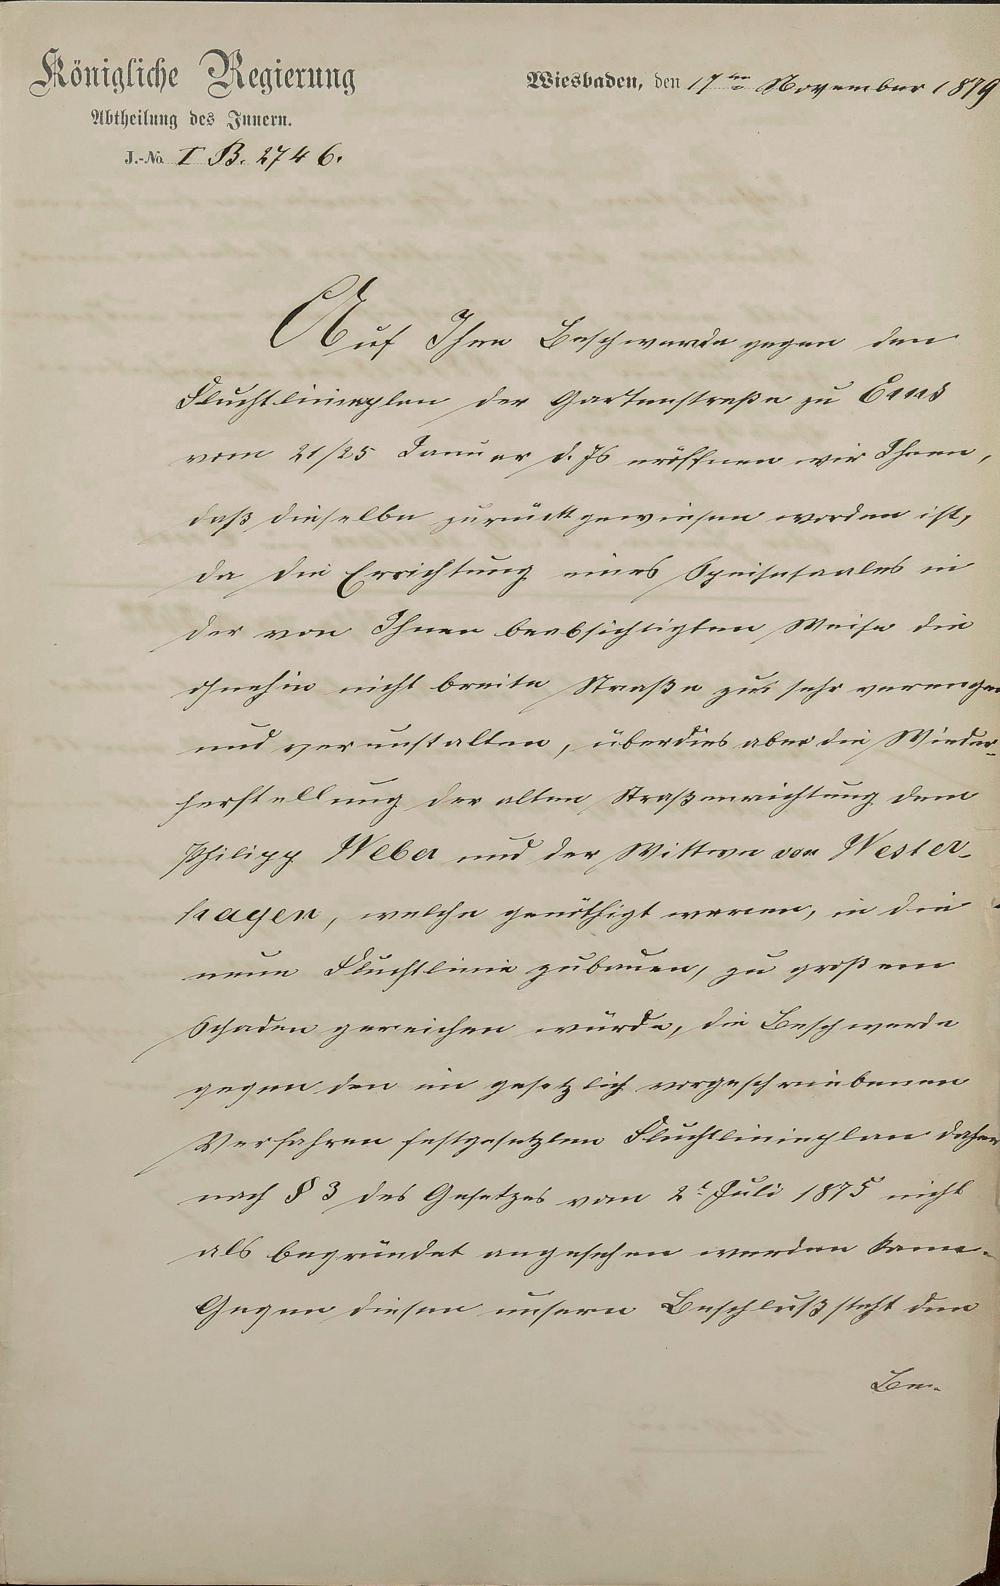 Königliche Regierung
Abtheilung des Innern.
J.-No. I B. 2746.
Wiesbaden, den 17ten November 1879
Auf Ihre Beschwerde gegen den
Fluchtlinienplan der Gartenstraße zu Ems
vom 21/25 Januar d. Js eröffnen wir Ihnen,
daß dieselbe zurückgewiesen worden ist,
da die Errichtung eines Speisesaales in
der von Ihnen beabsichtigten Weise die
ohnehin nicht breite Straße zu sehr verengen
und verunstalten, überdies aber die Wieder-
herstellung der alten Straßenrichtung dem
Philipp Weber und der Wittwe von Wester-
hagen, welche genöthigt waren, in die
neue Fluchtlinie zu bauen, zu großem
Schaden gereichen würde, die Beschwerde
gegen den im gesetzlich vorgeschriebenen
Verfahren festgesetzten Fluchtlinienplan daher
nach § 3 des Gesetzes vom 2t Juli 1875 nicht
als begründet angesehen werden kann.
Gegen diesen unsern Beschluß steht den
Be-